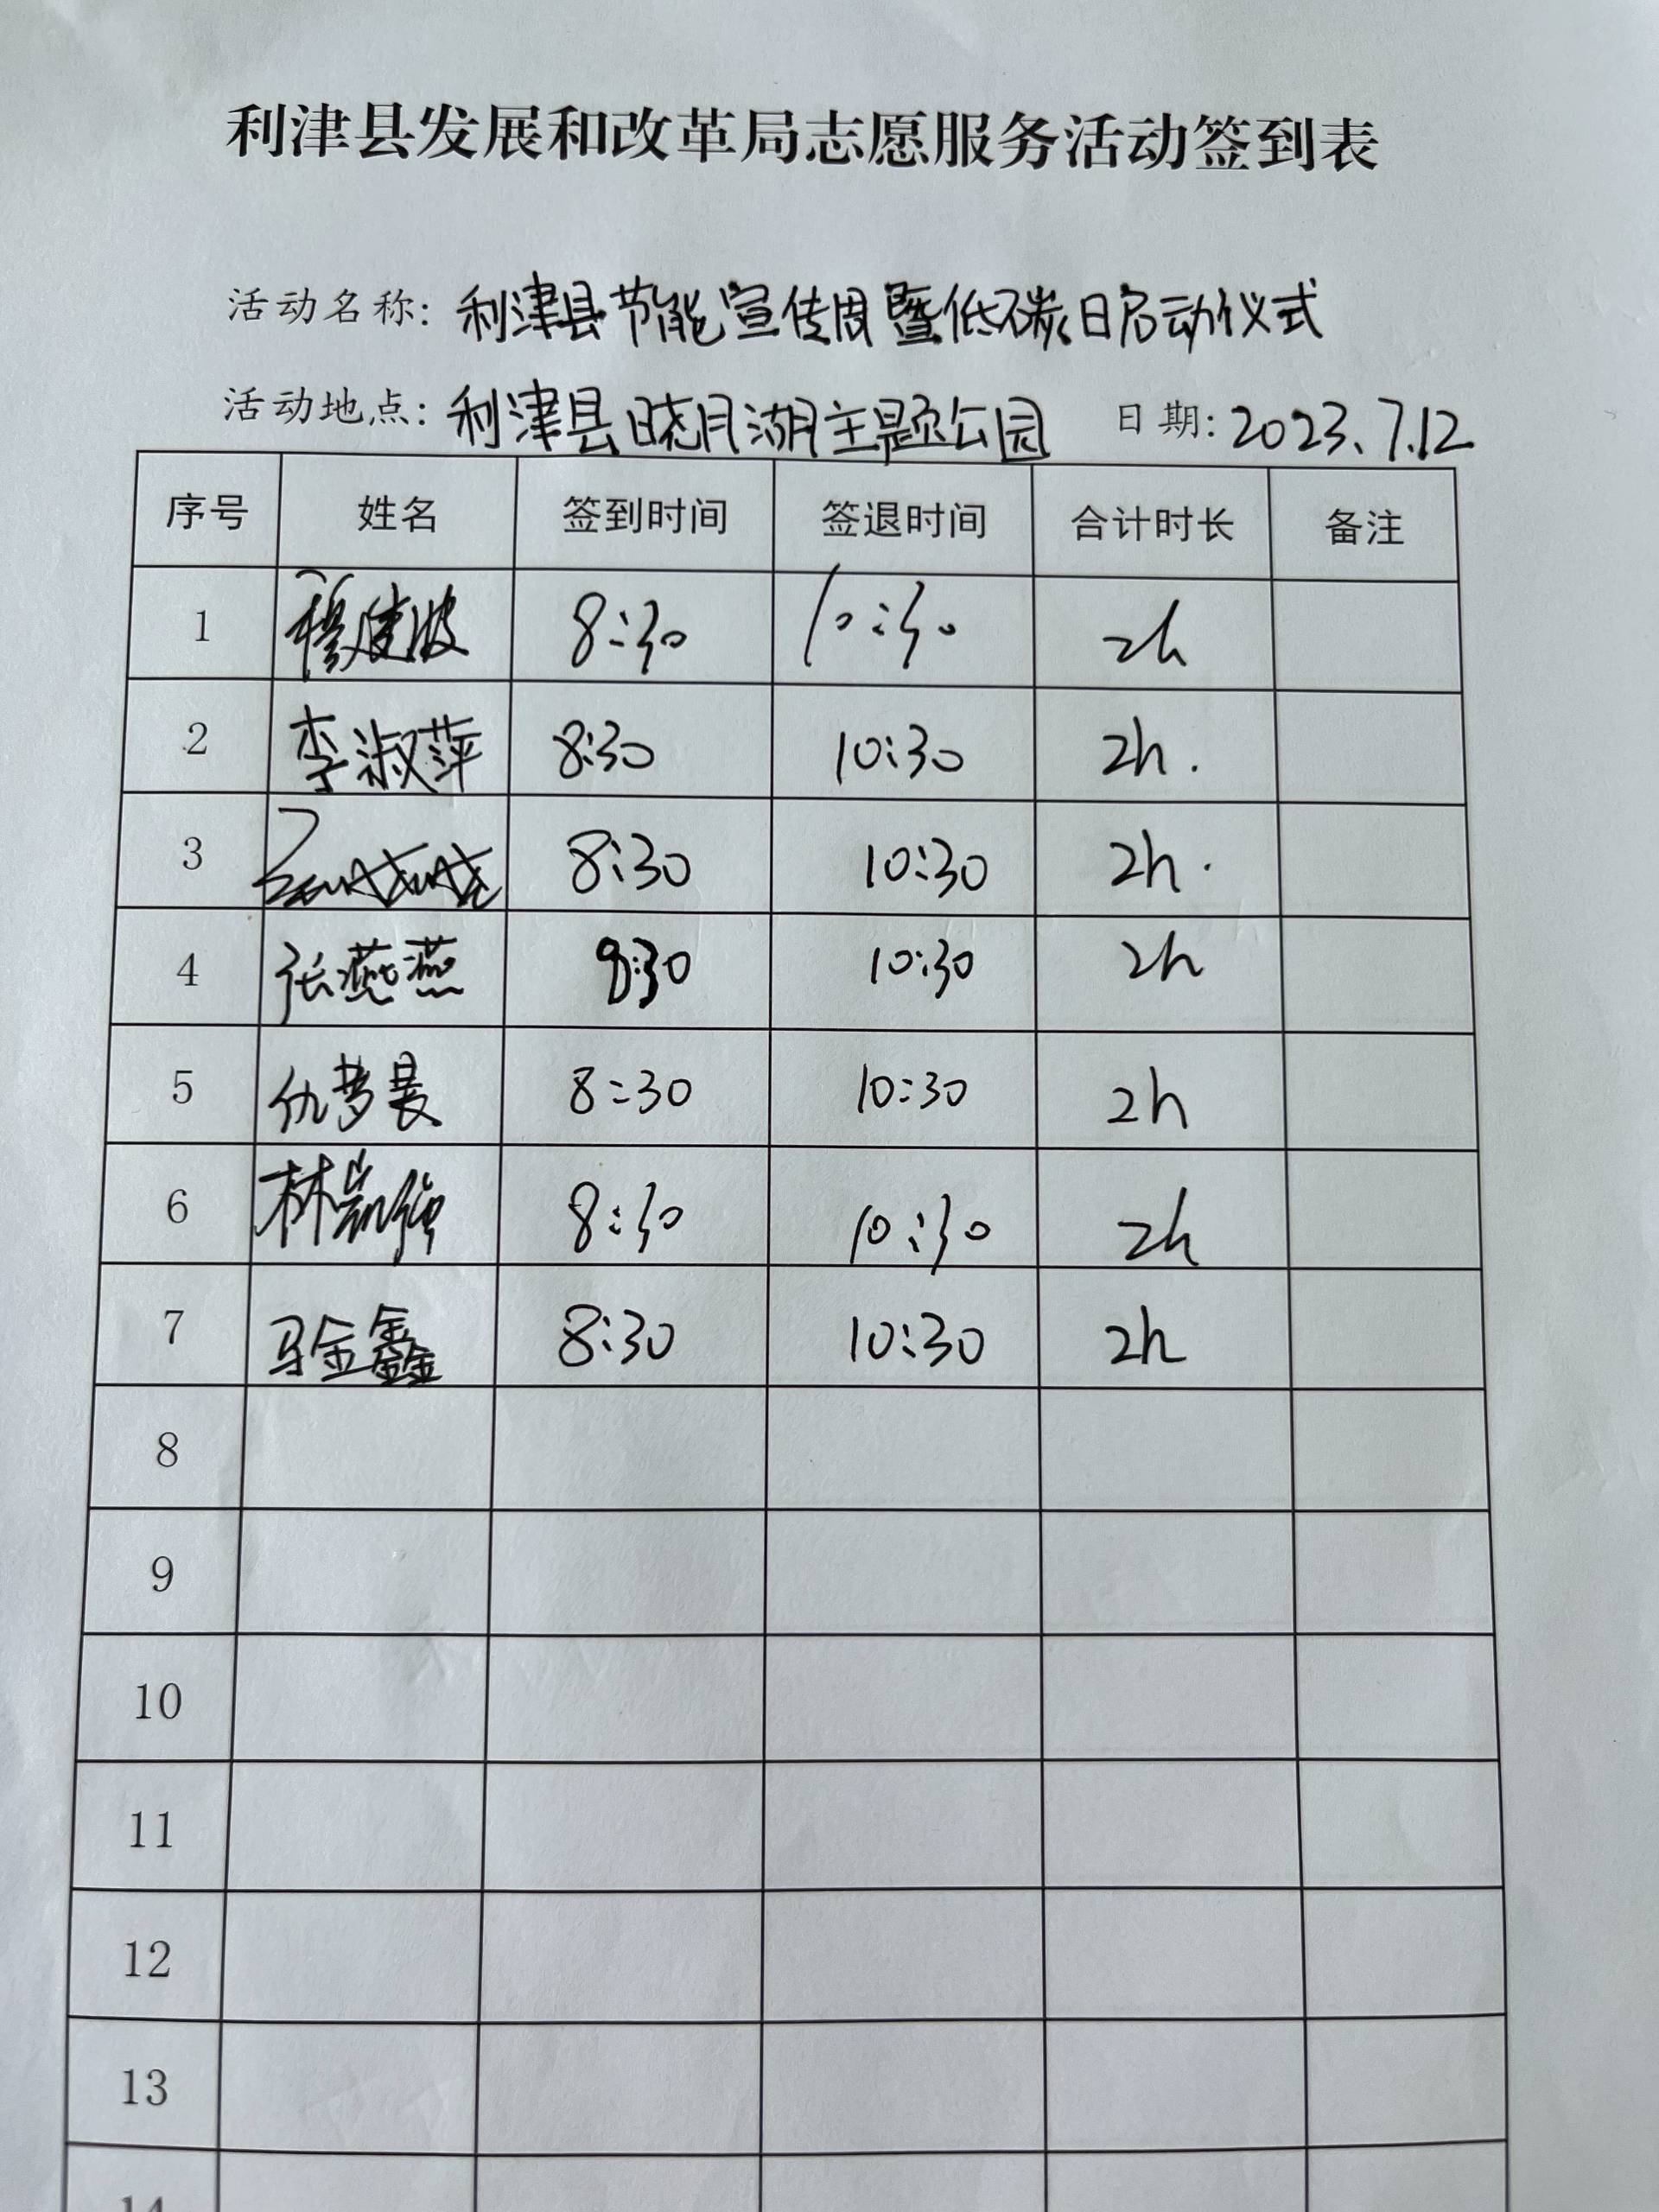 利津县发展和改革局志愿服务活动签到表
活动名称: 利津县节能宣传周暨低碳日启动仪式
活动地点: 利津县晓月湖主题公园 日期: 2023.7.12
序号 姓名 签到时间 签退时间 合计时长 备注
1 穆建波 8:30 10:30 2h
2 李淑萍 8:30 10:30 2h.
3 8:30 10:30 2h.
4 张燕燕 8:30 10:30 2h
5 仇梦晨 8:30 10:30 2h
6 林凯强 8:30 10:30 2h
7 马金鑫 8:30 10:30 2h
8
9
10
11
12
13
14